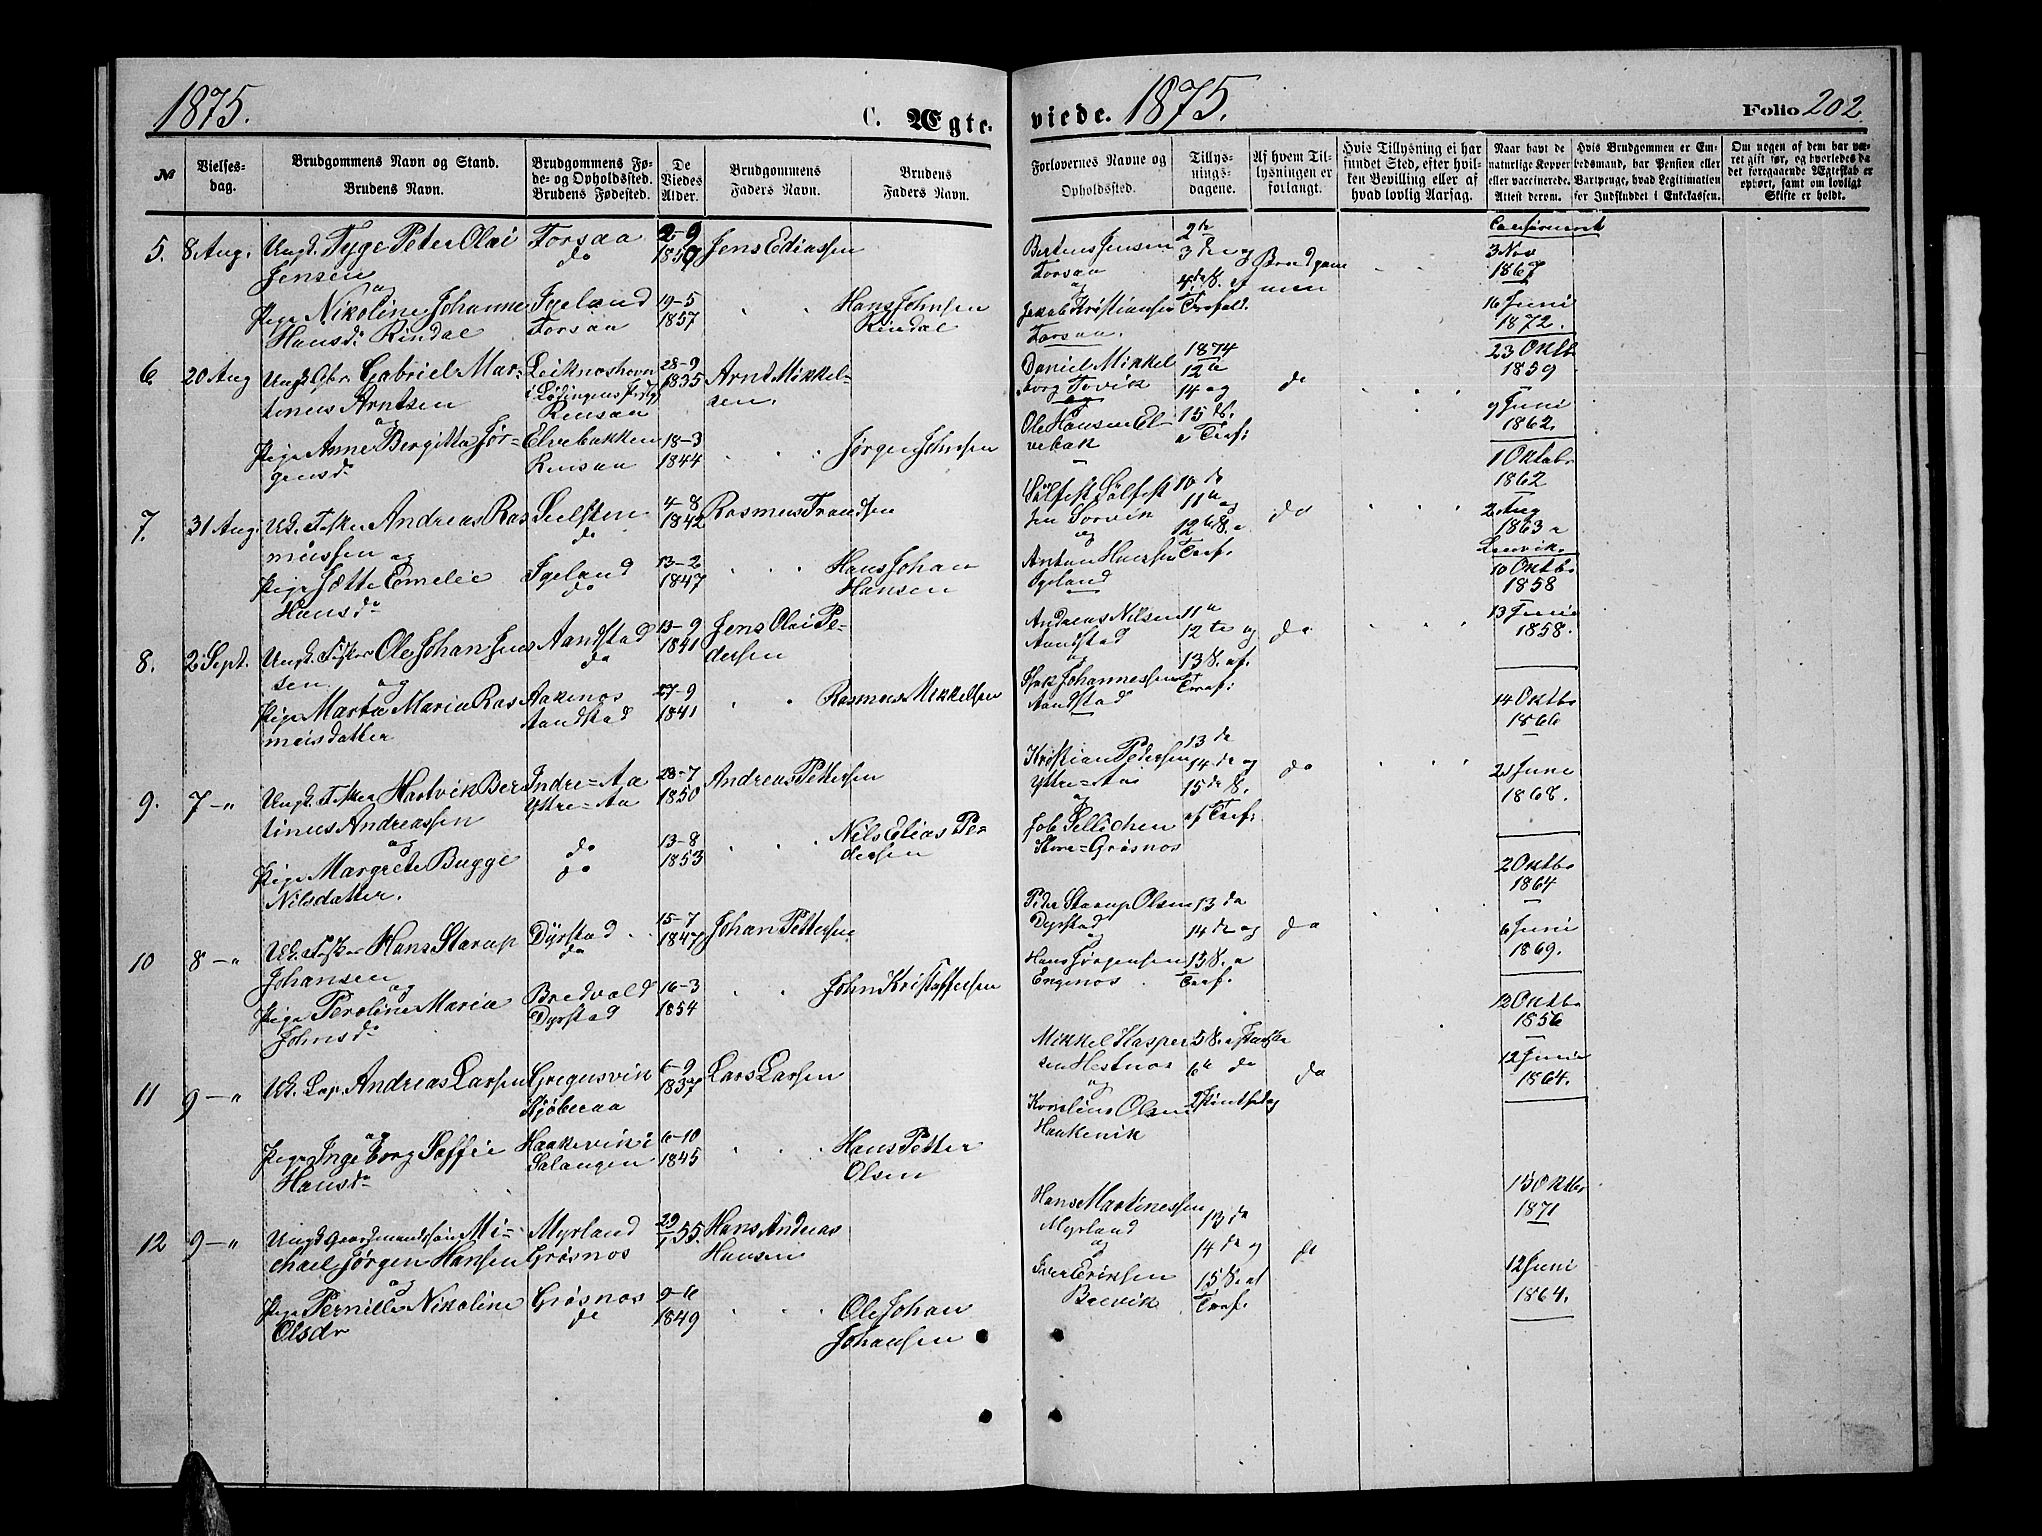 1875.
C. Ægte-
viede. 1875.
Folio 202.
№
Vielses-
dag.
Brudgommens Navn og Stand.
Brudens Navn.
Brudgommens Fø-
de- og Opholdssted.
Brudens Fødested.
De
Viedes
Alder.
Brudgommens
Faders Navn.
Brudens
Faders Navn.
Forlovernes Navne og
Opholdssted.
Tillys-
nings-
dagene.
Af hvem Til-
lysningen er
forlangt.
Hvis Tillysning ei har
fundet Sted, efter hvil-
ken Bevilling eller af
hvad lovlig Aarsag.
Naar havt de
naturlige Kopper
eller vaccinerede.
Attest derom.
Hvis Brudgommen er Em-
bedsmand, har Pension eller
Vartpenge, hvad Legitimation
for Indskuddet i Enkekassen.
Om nogen af dem har væ-
ret gift før, og hvorledes da
det foregaaende Ægteskab er
ophørt, samt om lovligt
Skifte er holdt.
5. 8 Aug. Ungk. Tyge Peter Olai
Jensen
og
Pige Nikoline Johanne
Hansd. Rindal
Forsaa
do
Igeland
Forsaa
2-9
1850
19-5
1857
Jens Ediassen
Hans Johnsen
Rindal
Bertius Jensen
Forsaa
og
Jakob Kristiansen
Forsaa
2de
3die og
4de S. ef
Trefold.
Brudgom
men
Confirmeret
3 Nov
1867
16 Juni
1872.
6 20 Aug Ungk. Gbr. Gabriel Mar-
tinus Arntsen
og
Pige Anne Bergitta Jør-
gensd.
Leikneshavn
i Lødingens Prstgj
Rensaa
Elvebakken
Rensaa
28-9
1835
18-3
1844
Arnt Mikkel-
sen.
Jørgen Johnsen
Daniel Mikkel
borg Tovik
og
Ole Hansen El-
vebak
1874
12te
14 og
15 S.
e Tref:
do
23 Oktb
1859
9 Juni
1862.
7. 31 Aug. Uk. Fisker Andreas Ras
mussen
og
Pige Jætte Emelie
Hansd.
Seilsten
do
Igeland
do
4-8
1842
13-2
1847
Rasmus Trondsen
Hans Johan
Hansen
Sölfest Sölfest
sen Sorvik
og
Anton Hansen
Igeland
10de
11te og
12te S. e
Tref.
do
1 Oktobr
1862
2 Aug
1863 e
8. 2 Sept. Ungk. Fisker Ole Johan Jens
sen
og
Pige Marta Maria Ras
musdatter
Aandstad
do
Aakenes
Aandstad
13-9
1841
27-9
1841
Jens Olai Pe-
dersen
Rasmus Mikkelsen
Andreas Nilsen
Aandstad
og
Isak Johannessen
Aandstad
11te
12te og
13 S. ef.
Tref:
do
10 Oktbr
1858
13 Juni
1858.
9. 7 - " Ungk. Fisker Hartvik Ber
tinus Andreassen
og
Pige Margrete Bugge
Nilsdatter.
Indre=Aa
Ytre=Aa
do
do
28-7
1850
13-8
1853
Andreas Pettersen
Nils Elias Pe-
dersen
Kristian Pedersen
Yttre=Aa
og
Job Sellichen
Store=Grøsnes
13de
14de og
15de S.
af Tref:
do
14 Oktbr
1866
21 Juni
1868.
10 8 - " Uk. Fisker Hans Starup
Johansen
og
Pige Peroline Maria
Johnsd.
Dyrstad
do
Bredvold
Dyrstad
15-7
1847
16-3
1854
Johan Pettersen
John Kristoffersen
Peder Starup Olsen
Dyrstad
og
Hans Jørgensen
Engenes
13de
14de og
15 S. e
Tref.
do
2 Oktbr
1864
6 Juni
1869.
11 9 - " Uk. Lap. Andreas Larsen
og
Pige Ingeborg Soffie
Hansd.
Gregusvik
Kjøberaa
Haakevik i
Salangen
6-9
1837
6-10
1845
Lars Larsen
Hans Petter
Olsen
Mikkel Kasper
sen Hestnes
og
Kornelius Olsen
Haakevik
5 S. e Paaske
6te do
do
12 Oktbr
1856
12 Juni
1864.
12 9 - " Ungk Gaardmandssøn Mi-
chael Jørgen Hansen
og
Pige Pernille Nikoline
Olsdr
Myrland
Grøsnes
Grøsnes
do
29/1 55.
9-6
1849
Hans Andreas
Hansen
Ole Johan
Johansen
Hans Martinessen
Myrland
og
Iver Eriksen
Breivik
13de
14de og
15 S. ef
Tref.
do
1 Oktbr
1871
12 Juni
1864.